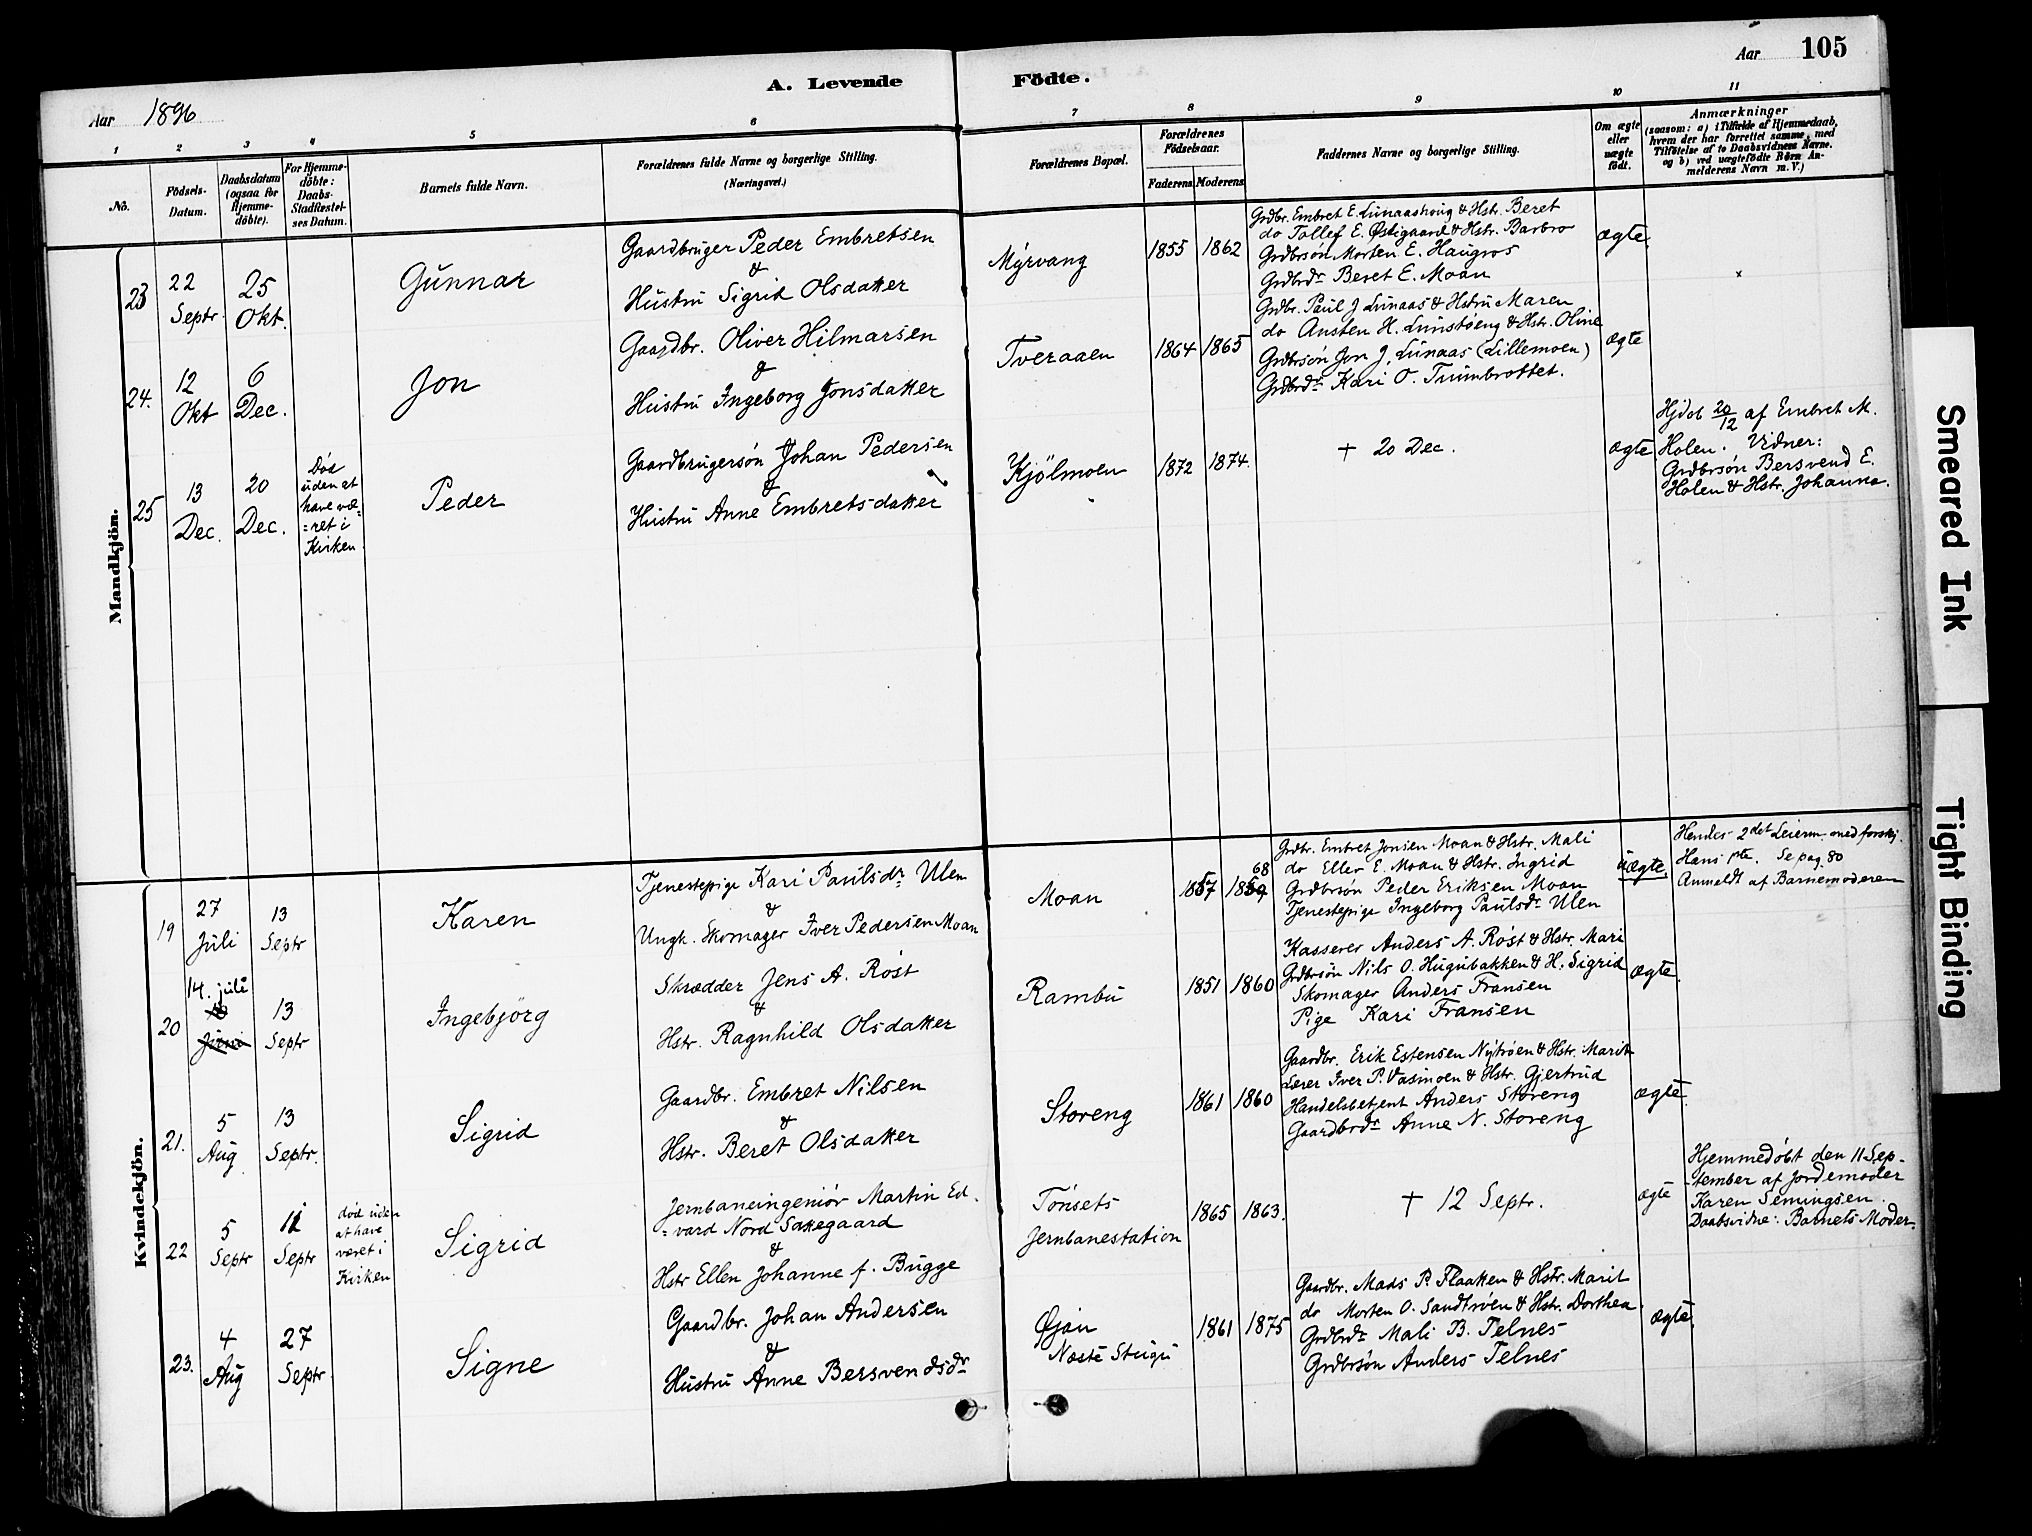 A. Levende Födte.
Aar 1896
Aar 105
1 2 3 4 5 6 7 8 9 10 11
No.
Födsels-
Datum.
Daabsdatum
(ogsaa for
Hjemme-
döbte).
For Hjemme-
döbte:
Daabs-
Stadfæstel-
ses Datum.
Barnets fulde Navn.
Forældrenes fulde Navne og borgerlige Stilling.
(Næringsvei.)
Forældrenes Bopæl.
Forældrenes
Födselsaar.
Faderens Moderens
Faddernes Navne og borgerlige Stilling.
Om ægte
eller
uægte
födt.
Anmærkninger
(saasom: a) i Tilfælde af Hjemmedaab,
hvem der har forrettet samme, med
Tilföielse af to Daabsvidners Navne.
og b) ved uægtefödte Börn An-
melderens Navn m. V.)
Mandkjön.
23
22
Septr.
25
Okt.
Gunnar
Gaardbruger Peder Embretsen
&
Hustru Sigrid Olsdatter
Myrvang
1855 1862
Grdbr. Embret E. Lunaashoug & Hstr. Beret
do Tollef E. Østigaard & Hstr. Barbro
Grdbrsön Morten E. Haugros
Grdbrdr Beret E. Moan
ægte
24.
12
Okt
6
Dec.
Jon
Gaardbr. Oliver Hilmarsen
&
Hustru Ingeborg Jonsdatter
Tveraaen
1864 1865
Grdbr. Paul J Lunaas & Hstru Maren
do Austen H. Lunstøeng & Hstr. Oline
Grdbrsön Jon J. Lunaas (Lillemoen)
Grdbrdr. Kari O. Trumbrottet.
ægte
25
13
Dec.
20
Dec.
Död
uden at
have væ-
=ret i
Kirken
Peder
Gaardbrugersön Johan Pedersen
&
Hustru Anne Embretsdatter
Kjölmoen
1872 1874.
† 20 Dec.
ægte
Hjdöb 20/12 af Embret M.
Holen. Vidner:
Grdbrsön Bersvend E.
Holen & Hstr. Johanna.
Kvindekjön.
19
27
Juli
13
Septr
Karen
Tjenestepige Kari Paulsdr. Ulen
&
Ungk. Skomager Iver Pedersen Moan
Moan
68
1857 1859
Grdbr. Embret Jonsen Moan & Hstr. Mali
do Ellev E. Moan & Hstr. Ingrid
Grdbrsön Peder Eriksen Moan
Tjenestepige Ingeborg Paulsdr Ulen
uægte
Hendes 2det Leierm. med forskj.
Hans 1ste. Se pag. 80
Anmeldt af Barnemoderen
20
14. juli
Juni
13
Septr
Ingebjörg
Skrædder Jens A. Röst
&
Hstr. Ragnhild Olsdatter
Rambu
1851 1860
Kasserer Anders A. Röst & Hstr. Mari
Grdbrsön Nils O. Hugubakken & H. Sigrid
Skomager Anders Fransen
Pige Kari Fransen
ægte
21.
5
Aug
13
Septr.
Sigrid
Gaardbr. Embret Nilsen
&
Hstr. Beret Olsdatter
Storeng
1861 1860
Gaardbr. Erik Estensen Nytröen & Hstr. Marit
Lærer Iver P. Vasmoen & Hstr. Gjertrud
Handelsbetjent Anders Storeng
Gaardbrdr. Anne N. Storeng
ægte
22
5
Septr
11
Septr
död uden
at have
været i
Kirken
Sigrid
Jernbaneingeniör Martin Ed-
=vard Nord Sattegaard
&
Hstr Ellen Johanne f. Bugge
Tönsets
Jernbanestation
1865 1863.
† 12 Septr.
ægte
Hjemmedöbt den 11 Sep-
tember af Jordemoder
Karen Semingsen.
Daabsvidne: Barnets Moder.
23.
4
Aug
27
Septr
Signe
Gaardbr. Johan Andersen
&
Hustru Anne Bersvendsdr
Øjan
Næste Steigu
1861 1875
Gaardbr. Mads P. Flaatten & Hstr. Marit
do Morten O. Sandtröen & Hstr. Dorthea
Grdbrdr Mali B. Telnes
Grdbrsön Anders Telnes
ægte
Smeared Ink
Tight Binding